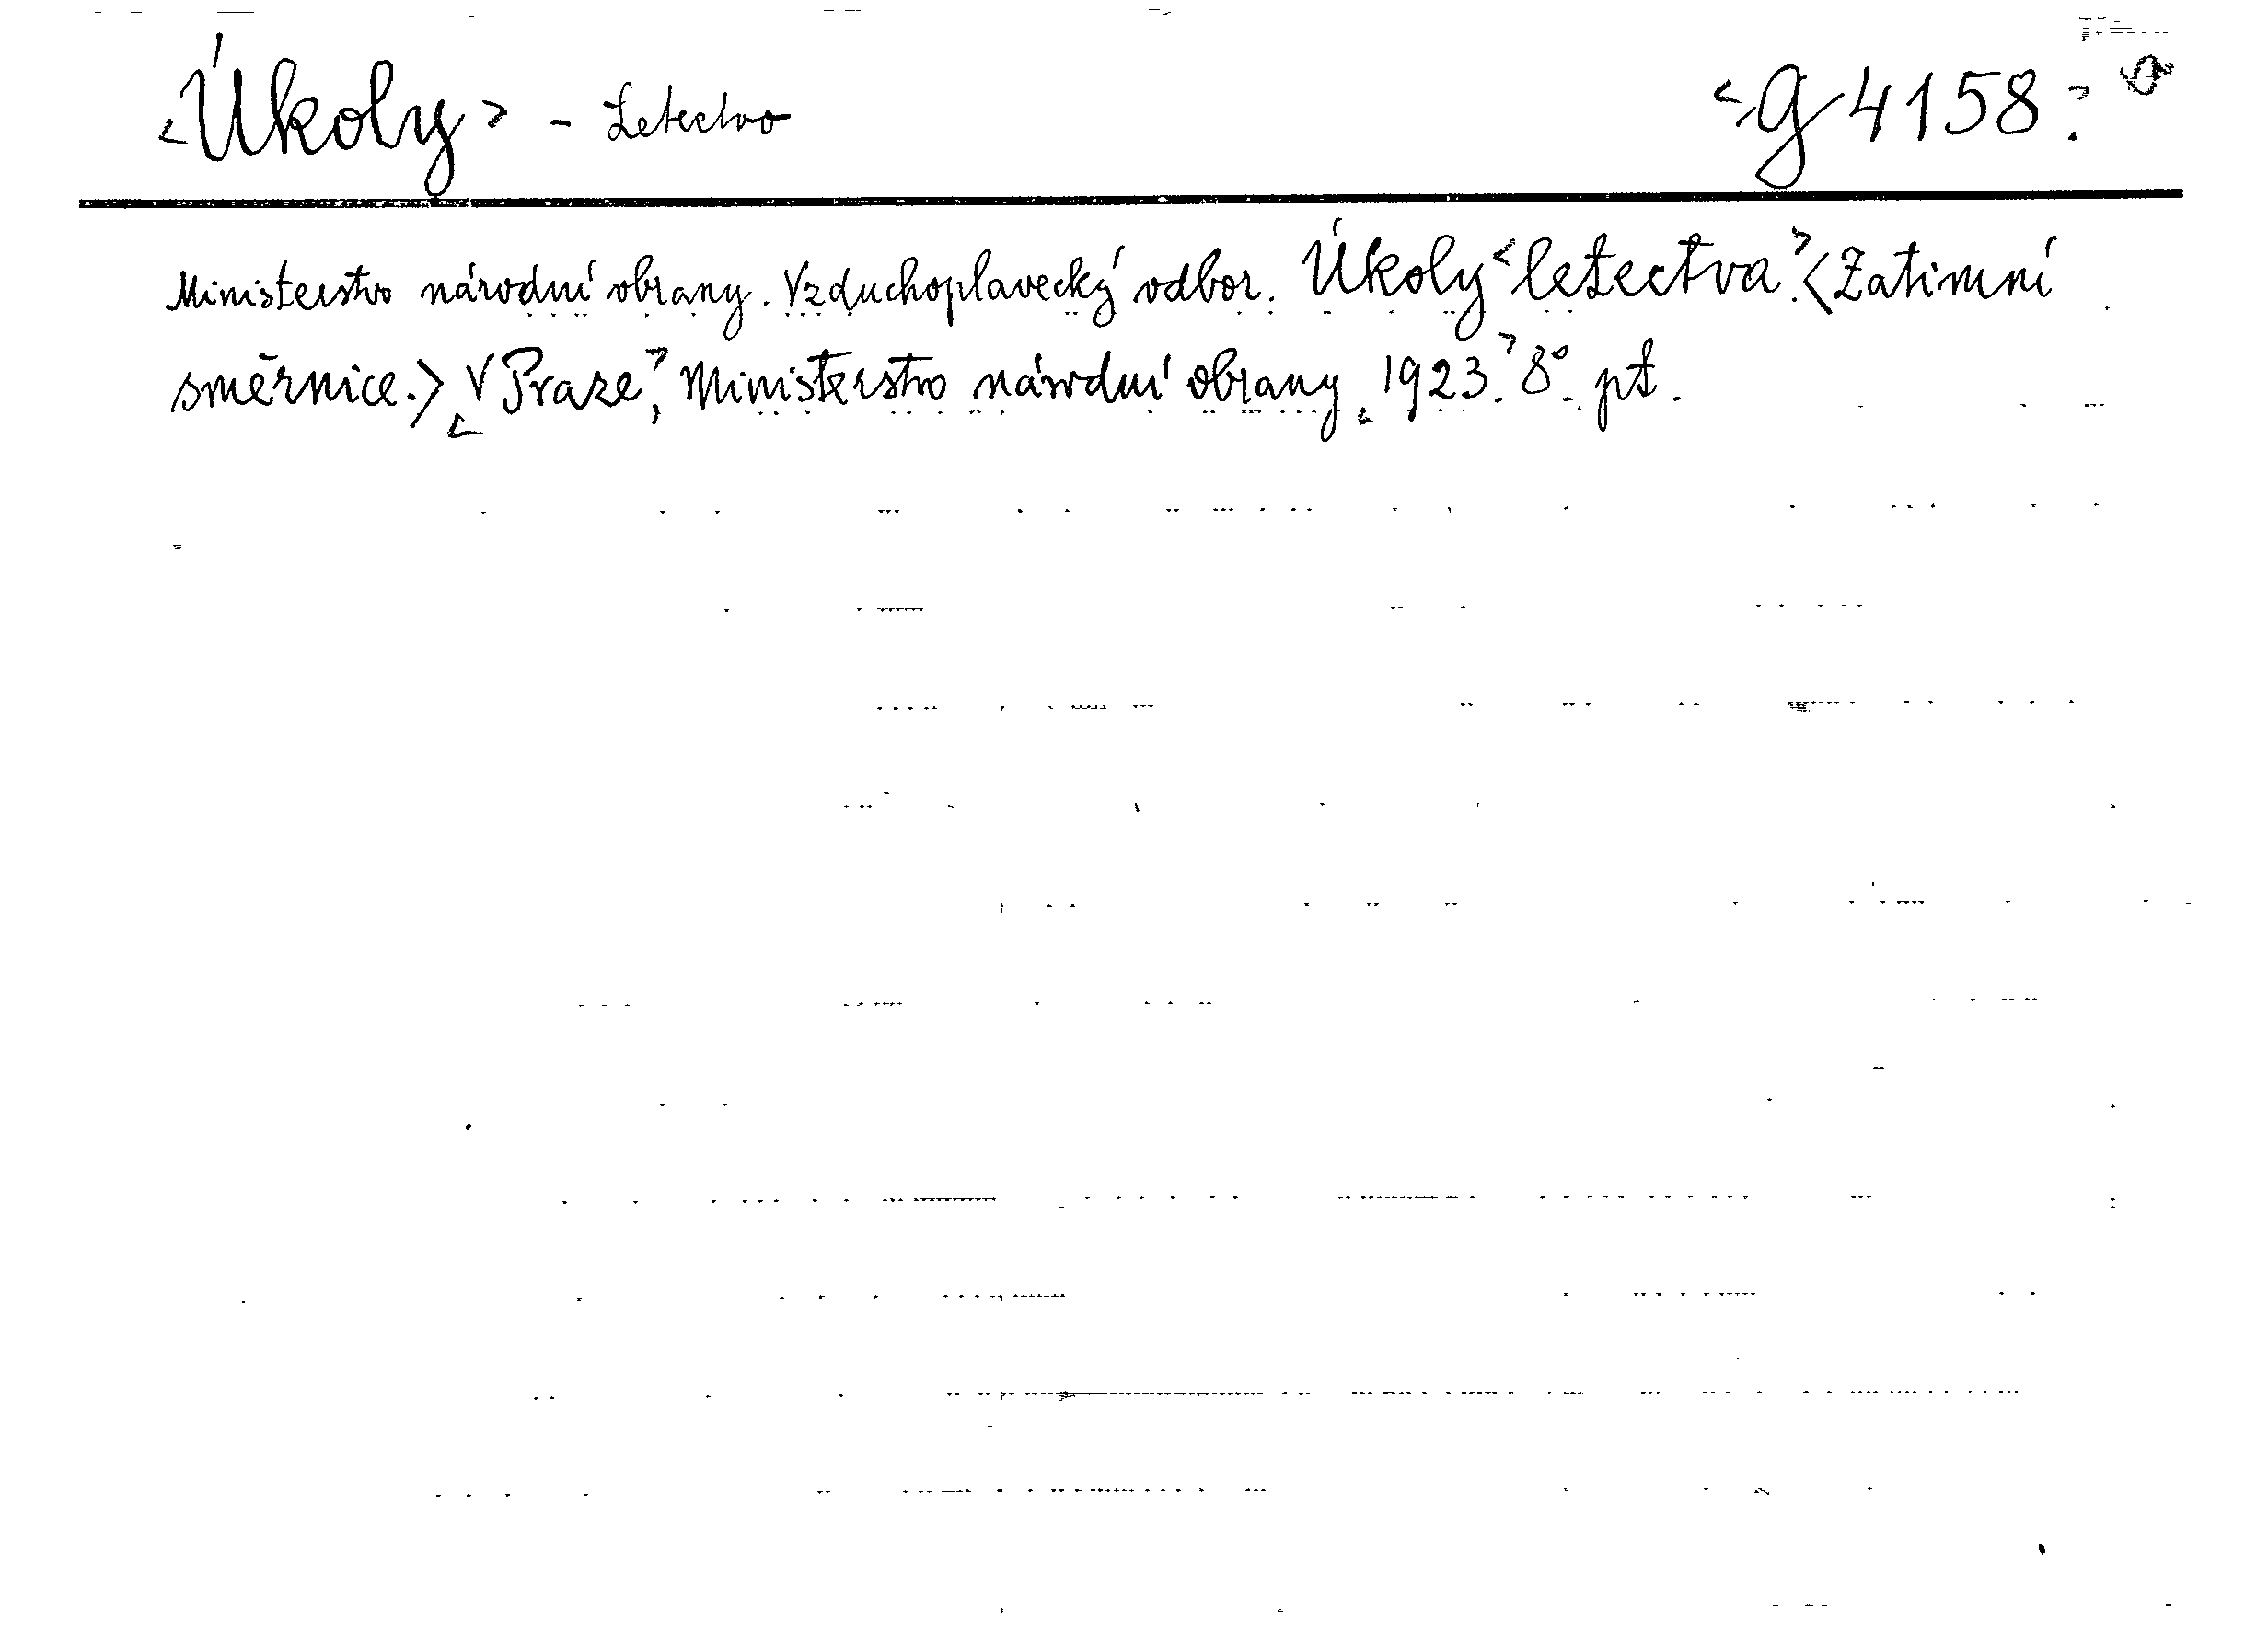 <Úkoly> - Letectvo <g 4158>.
Ministerstvo národní obrany. Vzduchoplavecký odbor. Úkoly <letectva>. <Zatimní
směrnice.> <V Praze>, Ministerstvo národní obrany <1923.> 8°. pt.